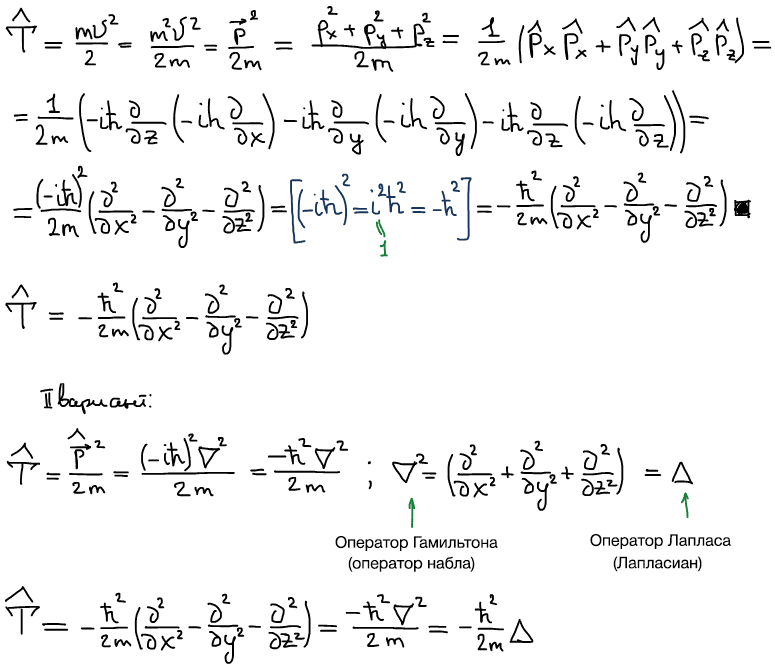 T̂ = mυ²/2 = m²υ²/2m = p⃗²/2m = (pₓ² + p_y² + p_z²)/2m = 1/2m (p̂ₓ p̂ₓ + p̂_y p̂_y + p̂_z p̂_z) =
= 1/2m (-iħ ∂/∂z (-iħ ∂/∂x) - iħ ∂/∂y (-iħ ∂/∂y) - iħ ∂/∂z (-iħ ∂/∂z)) =
= (-iħ)²/2m (∂²/∂x² - ∂²/∂y² - ∂²/∂z²) = [(-iħ)² = i²ħ² = -ħ²] = -ħ²/2m (∂²/∂x² - ∂²/∂y² - ∂²/∂z²) ■
1
T̂ = -ħ²/2m (∂²/∂x² - ∂²/∂y² - ∂²/∂z²)
II вариант:
T̂ = p̂⃗²/2m = (-iħ)²∇²/2m = -ħ²∇²/2m ; ∇² = (∂²/∂x² + ∂²/∂y² + ∂²/∂z²) = Δ
Оператор Гамильтона Оператор Лапласа
(оператор набла) (Лапласиан)
T̂ = -ħ²/2m (∂²/∂x² - ∂²/∂y² - ∂²/∂z²) = -ħ²∇²/2m = -ħ²/2m Δ